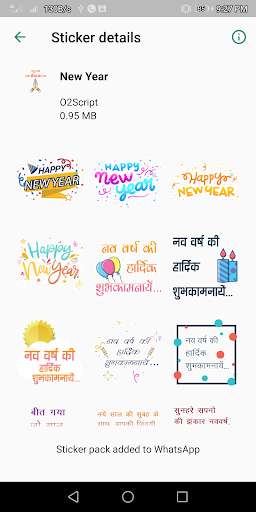 9:27 PM
Sticker details
New Year
O2Script
0.95 MB
HAPPY
NEW YEAR
HAPPY
New
year
Happy
NEW YEAR
Happy
New Year
नव वर्ष की
हार्दिक
शुभकामनायें...
नव वर्ष की
हार्दिक
शुभकामनायें...
नव वर्ष की
हार्दिक
शुभकामनायें...
नव वर्ष की
हार्दिक
शुभकामनायें...
नव वर्ष की
हार्दिक
शुभकामनायें...
बीत गया
नये साल की सुबह के
साथ आपकी जिंदगी
सुनहरे सपनों
की झंकार नववर्ष,
Sticker pack added to WhatsApp